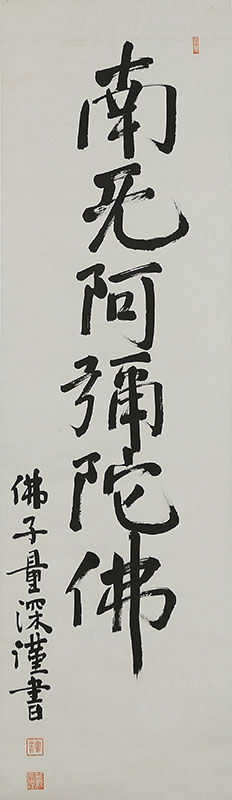 南无阿彌陀佛
佛子量深謹書